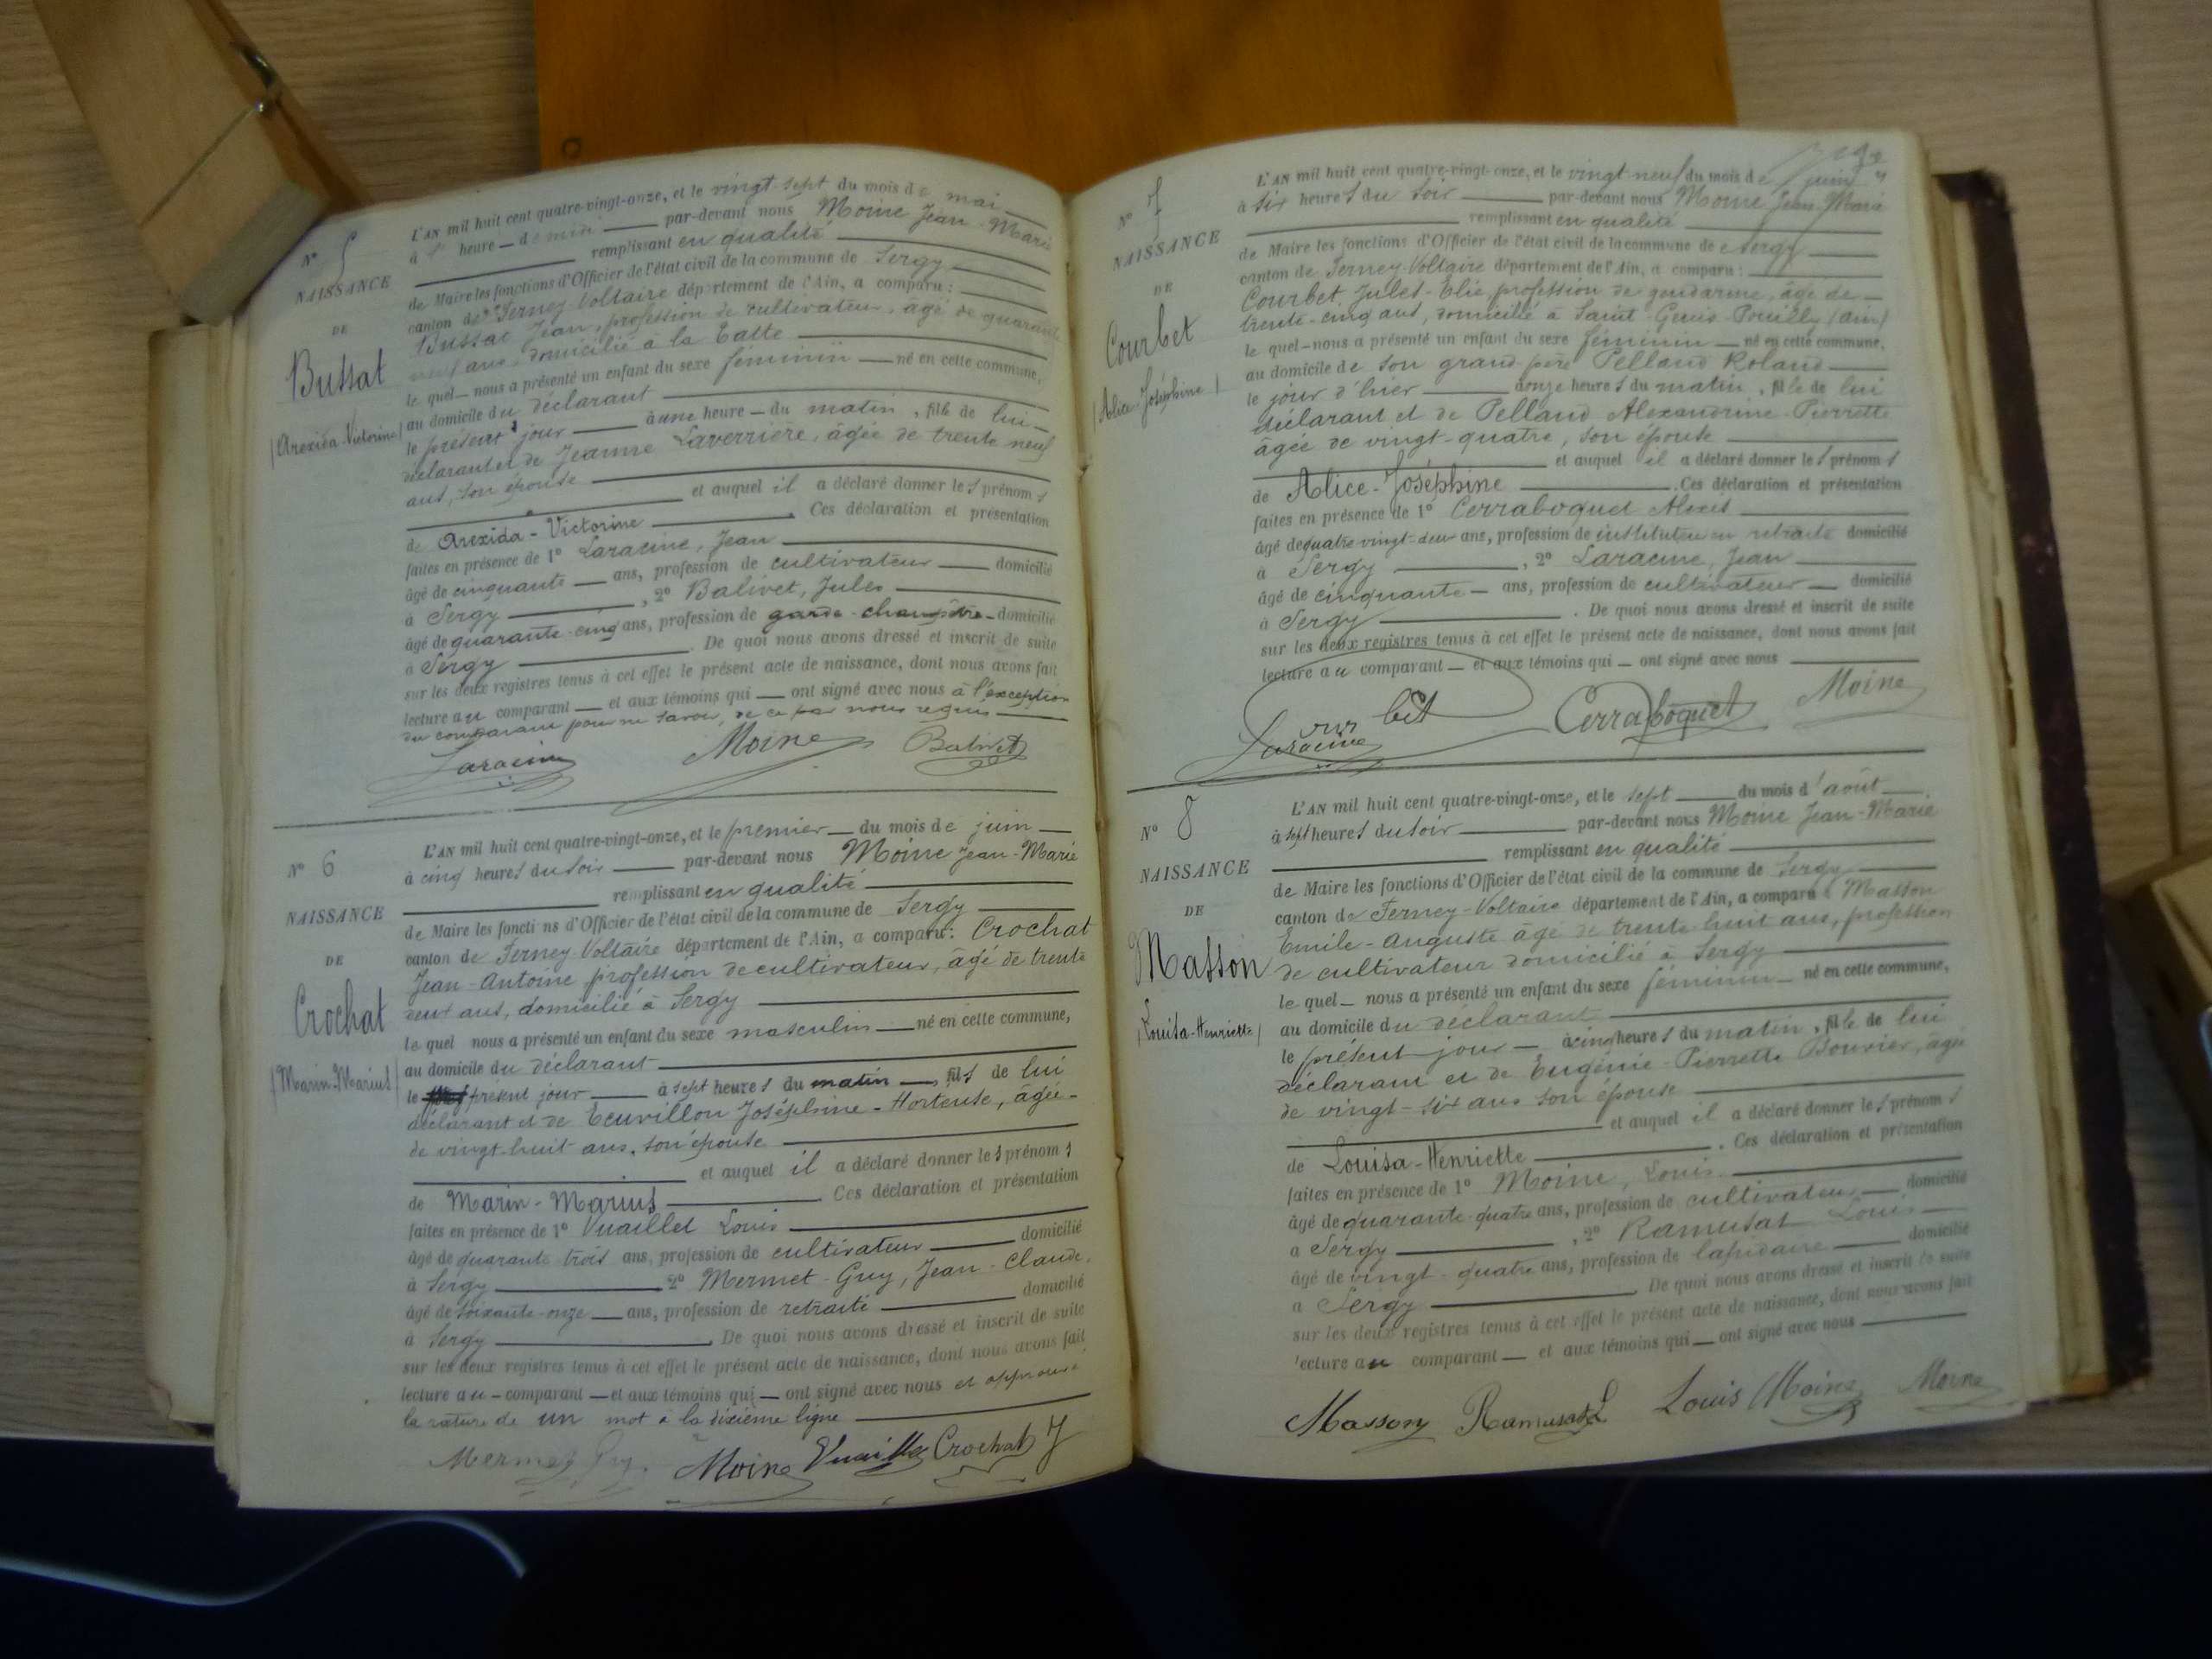 N° 5
NAISSANCE
DE
Bussat
(Arexida-Victorine)
L'AN mil huit cent quatre-vingt-onze, et le vingt sept du mois de mai
à heure du par-devant nous Moine Jean-Marie
remplissant en qualité
de Maire les fonctions d'Officier de l'état civil de la commune de Sergy
canton de Ferney-Voltaire département de l'Ain, a comparu :
Bussat Jean, profession de cultivateur, âgé de quarante
neuf ans, domicilié à la
le quel nous a présenté un enfant du sexe féminin né en cette commune,
au domicile du déclarant
le présent jour à une heure du matin, fille de lui
déclarant et de Jeanne Laverrière, âgée de trente neuf
ans, son épouse
et auquel il a déclaré donner les prénoms
de Arexida-Victorine Ces déclaration et présentation
faites en présence de 1° Laracine, Jean
âgé de cinquante ans, profession de cultivateur domicilié
à Sergy, 2° Balivet, Jules
âgé de quarante-cinq ans, profession de garde-champêtre domicilié
à Sergy. De quoi nous avons dressé et inscrit de suite
sur les deux registres tenus à cet effet le présent acte de naissance, dont nous avons fait
lecture au comparant et aux témoins qui ont signé avec nous à l'exception
du comparant pour ne savoir, de ce par nous requis
Laracine Moine Balivet
N° 6
NAISSANCE
DE
Crochat
(Marin-Marius)
L'AN mil huit cent quatre-vingt-onze, et le premier du mois de juin
à cinq heures du soir par-devant nous Moine Jean-Marie
remplissant en qualité
de Maire les foncti ns d'Officier de l'état civil de la commune de Sergy
canton de Ferney-Voltaire département de l'Ain, a comparu : Crochat
Jean-Antoine profession de cultivateur, âgé de trente
deux ans, domicilié à Sergy
le quel nous a présenté un enfant du sexe masculin né en cette commune,
au domicile du déclarant
le présent jour à sept heures du matin, fils de lui
déclarant et de Ecuvillon Joséphine-Hortense, âgée
de vingt-huit ans, son épouse
et auquel il a déclaré donner les prénoms
de Marin-Marius Ces déclaration et présentation
faites en présence de 1° Vuaillet Louis
âgé de quarante trois ans, profession de cultivateur domicilié
à Sergy 2° Mermet-Guy, Jean-Claude,
âgé de soixante-onze ans, profession de retraité domicilié
à Sergy. De quoi nous avons dressé et inscrit de suite
sur les deux registres tenus à cet effet le présent acte de naissance, dont nous avons fait
lecture au comparant et aux témoins qui ont signé avec nous et approuvé
la rature de un mot à la dixième ligne
Mermet Guy Moine Vuaillet Crochat J
N° 7
NAISSANCE
DE
Courbet
(Alice-Joséphine)
L'AN mil huit cent quatre-vingt-onze, et le vingt neuf du mois de juin
à six heures du soir par-devant nous Moine Jean-Marie
remplissant en qualité
de Maire les fonctions d'Officier de l'état civil de la commune de Sergy
canton de Ferney-Voltaire département de l'Ain, a comparu :
Courbet, Jules-Elie profession de gendarme, âgé de
trente-cinq ans, domicilié à Saint-Genis-Pouilly (Ain)
le quel nous a présenté un enfant du sexe féminin né en cette commune,
au domicile de son grand-père Pelland Roland
le jour d'hier à onze heures du matin, fille de lui
déclarant et de Pelland Alexandrine-Pierrette
âgée de vingt-quatre, son épouse
et auquel il a déclaré donner les prénoms
de Alice-Joséphine. Ces déclaration et présentation
faites en présence de 1° Cerraboquet Alexis
âgé de quatre-vingt-deux ans, profession de instituteur en retraite domicilié
à Sergy, 2° Laracine, Jean
âgé de cinquante ans, profession de cultivateur domicilié
à Sergy. De quoi nous avons dressé et inscrit de suite
sur les deux registres tenus à cet effet le présent acte de naissance, dont nous avons fait
lecture au comparant et aux témoins qui ont signé avec nous
Courbet Cerraboquet Moine
Laracine
N° 8
NAISSANCE
DE
Masson
(Louisa-Henriette)
L'AN mil huit cent quatre-vingt-onze, et le sept du mois d'août
à sept heures du soir par-devant nous Moine Jean-Marie
remplissant en qualité
de Maire les fonctions d'Officier de l'état civil de la commune de Sergy
canton de Ferney-Voltaire département de l'Ain, a comparu : Masson
Emile-Auguste âgé de trente huit ans, profession
de cultivateur domicilié à Sergy
le quel nous a présenté un enfant du sexe féminin né en cette commune,
au domicile du déclarant
le présent jour à cinq heures du matin, fille de lui
déclarant et de Eugénie-Pierrette Bouvier, âgée
de vingt-six ans son épouse
et auquel il a déclaré donner les prénoms
de Louisa-Henriette. Ces déclaration et présentation
faites en présence de 1° Moine, Louis
âgé de quarante-quatre ans, profession de cultivateur domicilié
à Sergy, 2° Ramusat Louis
âgé de vingt-quatre ans, profession de lapidaire domicilié
à Sergy. De quoi nous avons dressé et inscrit de suite
sur les deux registres tenus à cet effet le présent acte de naissance, dont nous avons fait
lecture au comparant et aux témoins qui ont signé avec nous
Masson Ramusat L Louis Moine Moine